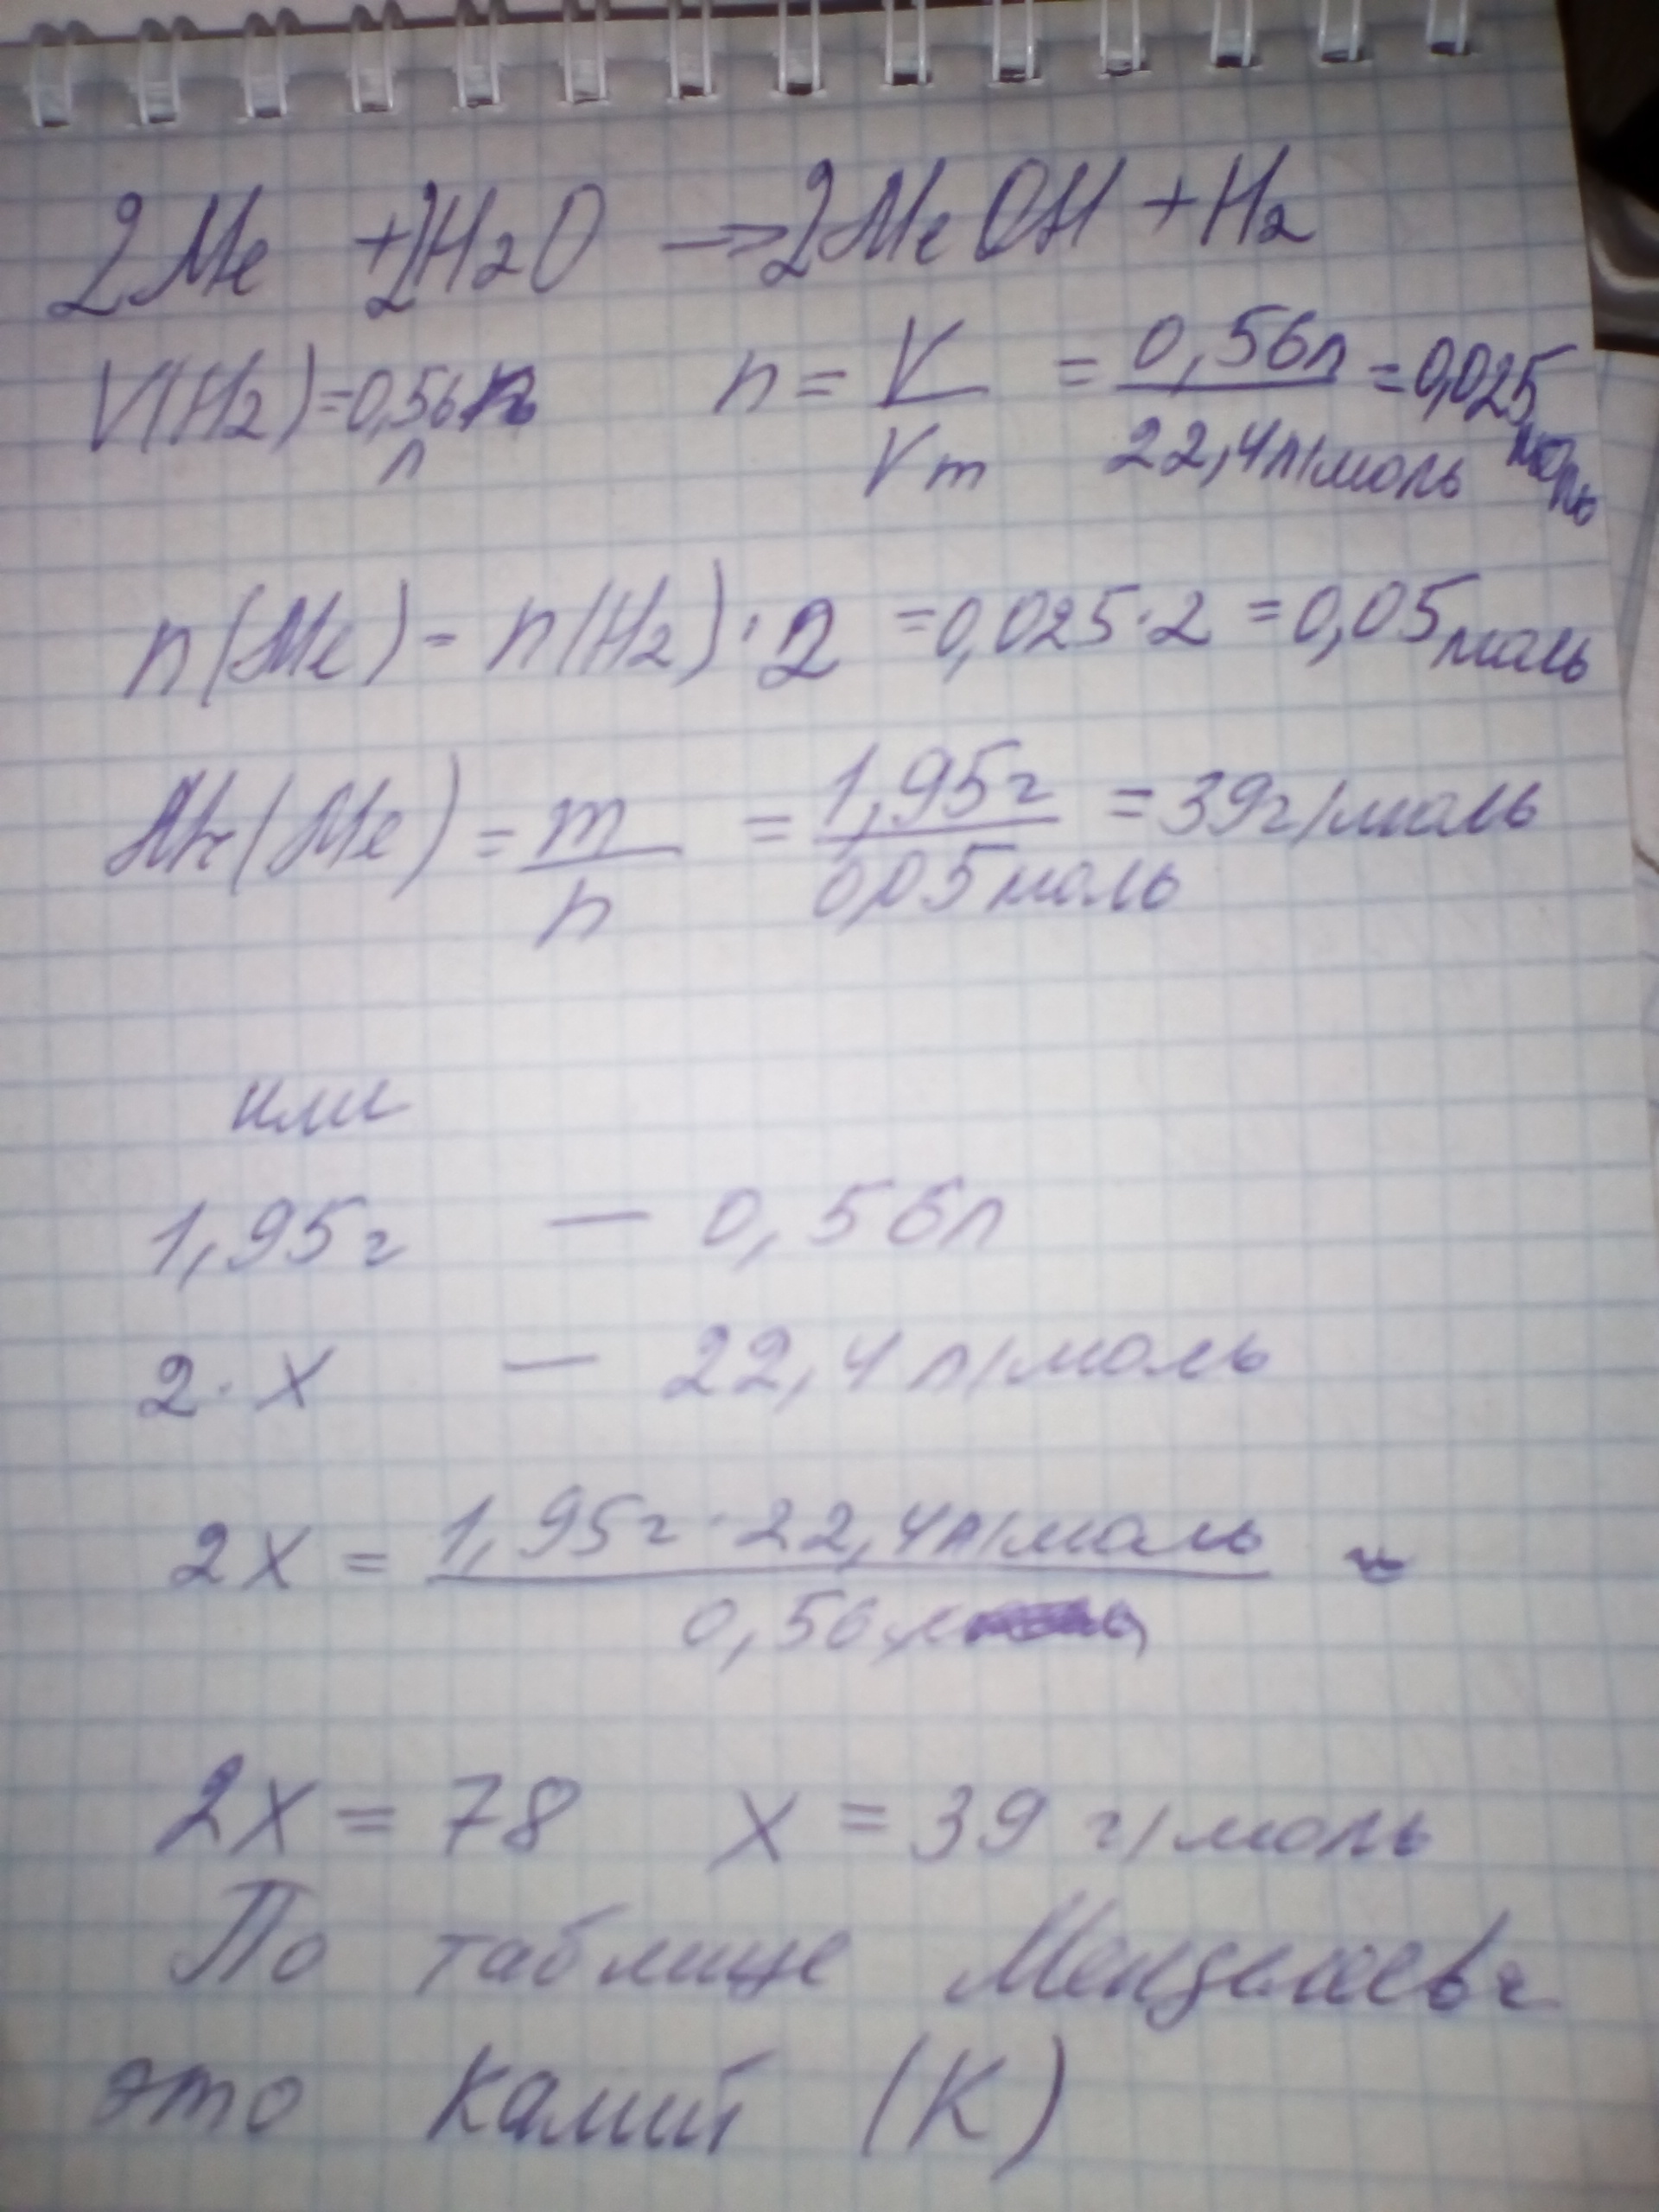 2Me + 2H2O → 2MeOH + H2
V(H2) = 0,56 л n = V/Vm = 0,56л/22,4л/моль = 0,025 моль
n(Me) = n(H2) · 2 = 0,025 · 2 = 0,05 моль
Mr(Me) = m/n = 1,95г/0,05 моль = 39г/моль
или
1,95г — 0,56л
2 · x — 22,4 л/моль
2x = 1,95г · 22,4л/моль / 0,56
2x = 78 x = 39 г/моль
По таблице Менделеева
это Калий (K)